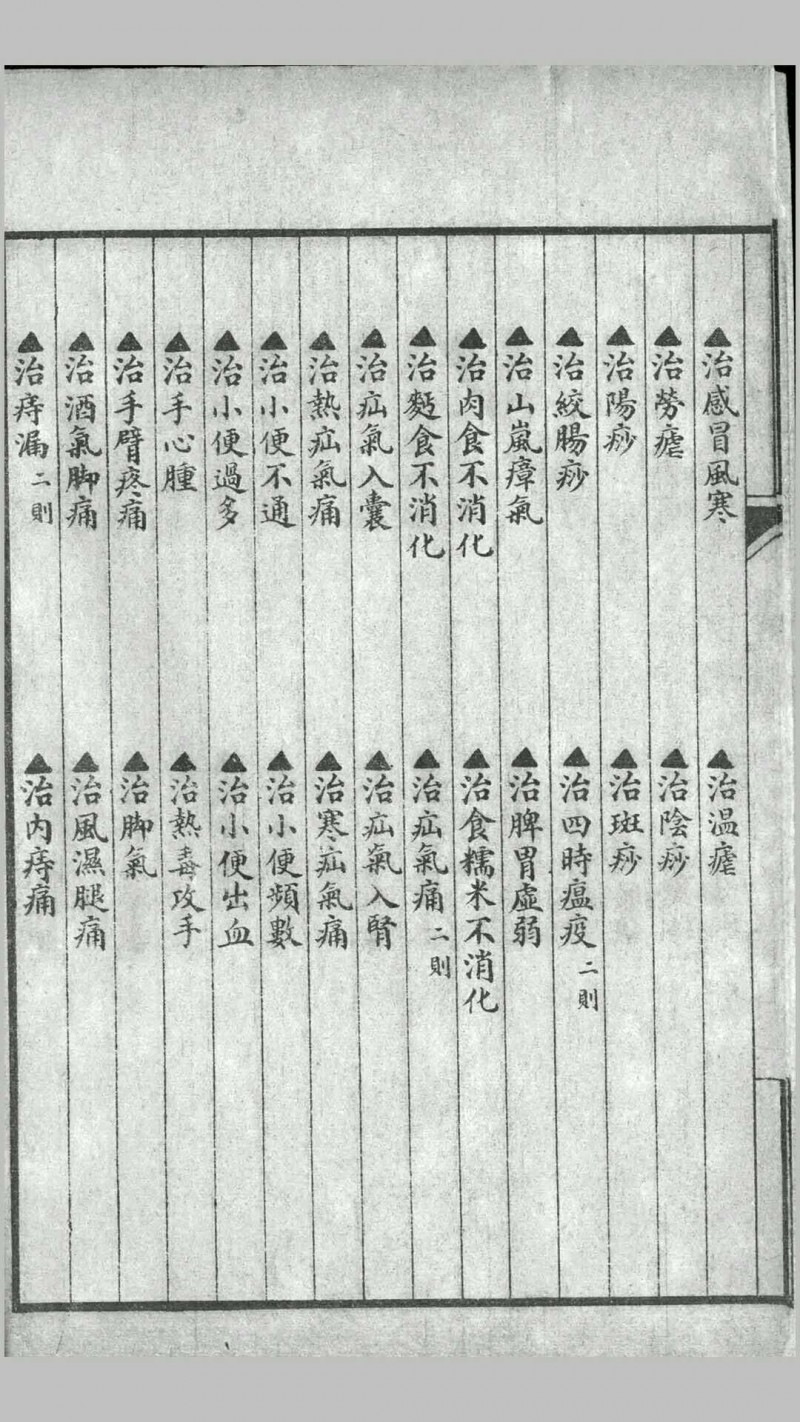 ▲治感冒風寒 ▲治温瘧
▲治勞瘧 ▲治陰痧
▲治陽痧 ▲治斑痧
▲治絞腸痧 ▲治四時瘟疫二則
▲治山嵐瘴氣 ▲治脾胃虛弱
▲治肉食不消化 ▲治食糯米不消化
▲治麪食不消化 ▲治疝氣痛二則
▲治疝氣入囊 ▲治疝氣入腎
▲治熱疝氣痛 ▲治寒疝氣痛
▲治小便不通 ▲治小便頻數
▲治小便過多 ▲治小便出血
▲治手心腫 ▲治熱毒攻手
▲治手臂疼痛 ▲治脚氣
▲治酒氣脚痛 ▲治風濕腿痛
▲治痔漏二則 ▲治内痔痛